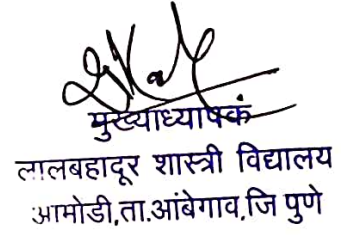 मुख्याध्यापक
लालबहादूर शास्त्री विद्यालय
आमोडी,ता.आंबेगाव,जि पुणे